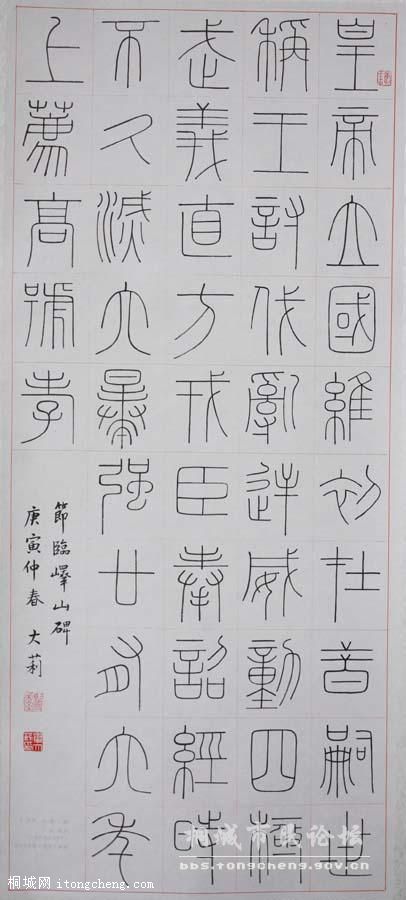 皇帝立國維初在昔嗣世
稱王討伐亂逆威動四極
武義直方戎臣奉詔經時
不久滅六暴强廿有六年
上薦高號孝
節臨嶧山碑
庚寅仲春 大莉
桐城市民论坛
bbs.tongcheng.gov.cn
桐城网 itongcheng.com